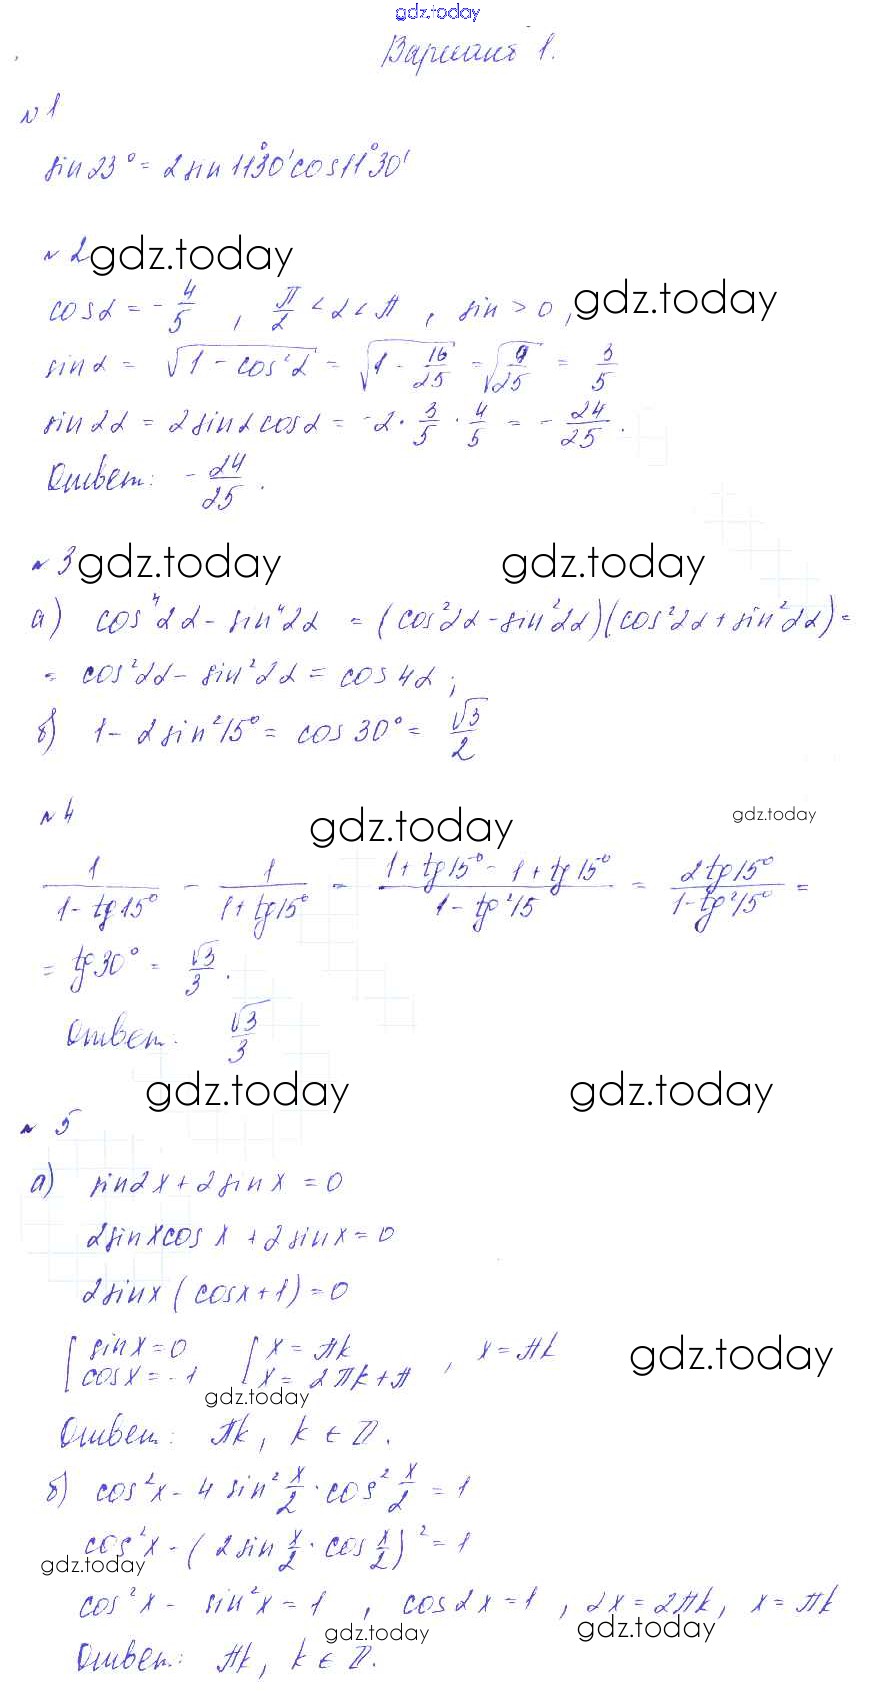 gdz.today
Вариант 1.
№1
sin23° = 2sin11°30'cos11°30'
№2 gdz.today
cosα = -4/5, π/2 < α < π, sin > 0, gdz.today
sinα = √(1 - cos²α) = √(1 - 16/25) = √(9/25) = 3/5
sin2α = 2sinαcosα = -2·3/5·4/5 = -24/25.
Ответ: -24/25.
№3 gdz.today gdz.today
а) cos⁴2α - sin⁴2α = (cos²2α - sin²2α)(cos²2α + sin²2α) =
= cos²2α - sin²2α = cos4α;
б) 1 - 2sin²15° = cos30° = √3/2
№4 gdz.today gdz.today
1/(1 - tg15°) - 1/(1 + tg15°) = (1 + tg15° - 1 + tg15°)/(1 - tg²15) = 2tg15°/(1 - tg²15°) =
= tg30° = √3/3.
Ответ: √3/3
gdz.today gdz.today
№5
а) sin2x + 2sinx = 0
2sinxcosx + 2sinx = 0
2sinx(cosx + 1) = 0
[sinx = 0 [x = πk
cosx = -1 x = 2πk + π, x = πk gdz.today
gdz.today
Ответ: πk, k ∈ Z.
б) cos²x - 4sin²x/2·cos²x/2 = 1
cos²x - (2sinx/2·cosx/2)² = 1
gdz.today
cos²x - sin²x = 1, cos2x = 1, 2x = 2πk, x = πk
gdz.today gdz.today
Ответ: πk, k ∈ Z.